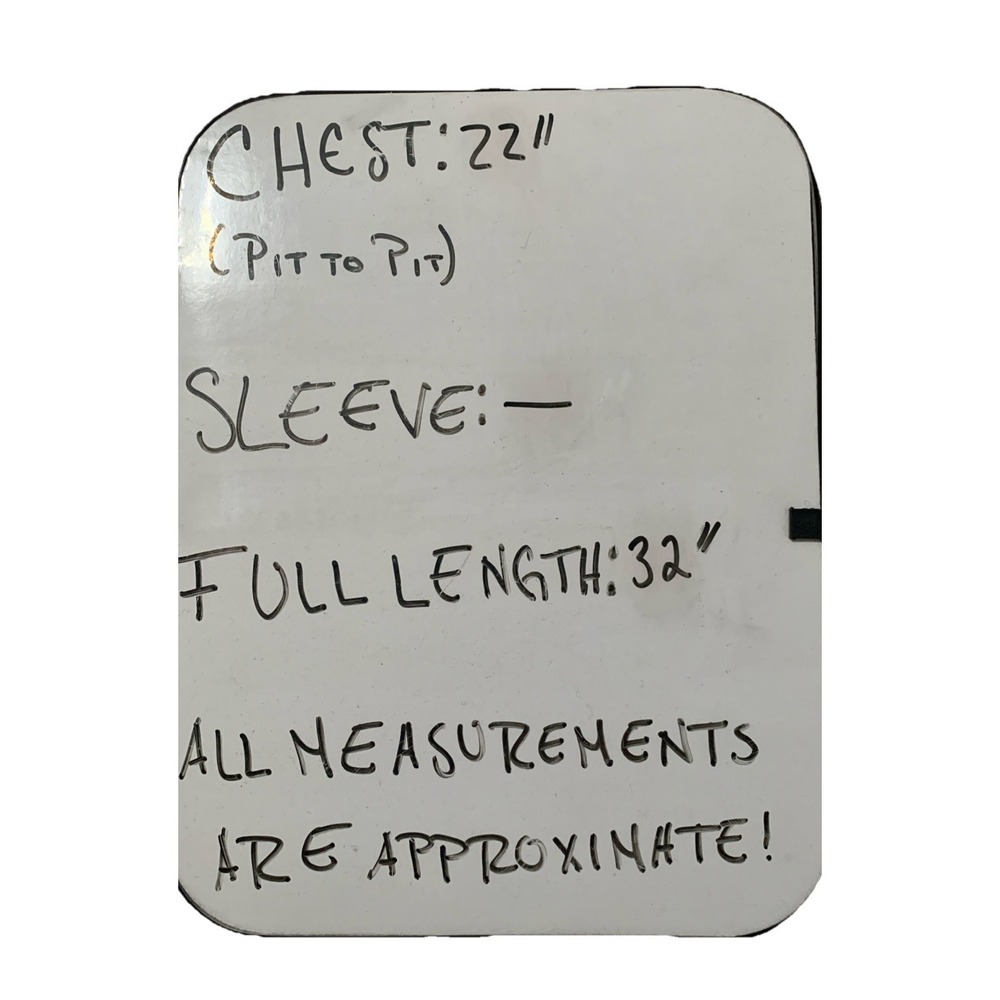 CHEST: 22"
(PIT TO PIT)
SLEEVE: —
FULL LENGTH: 32"
ALL MEASUREMENTS
ARE APPROXIMATE!